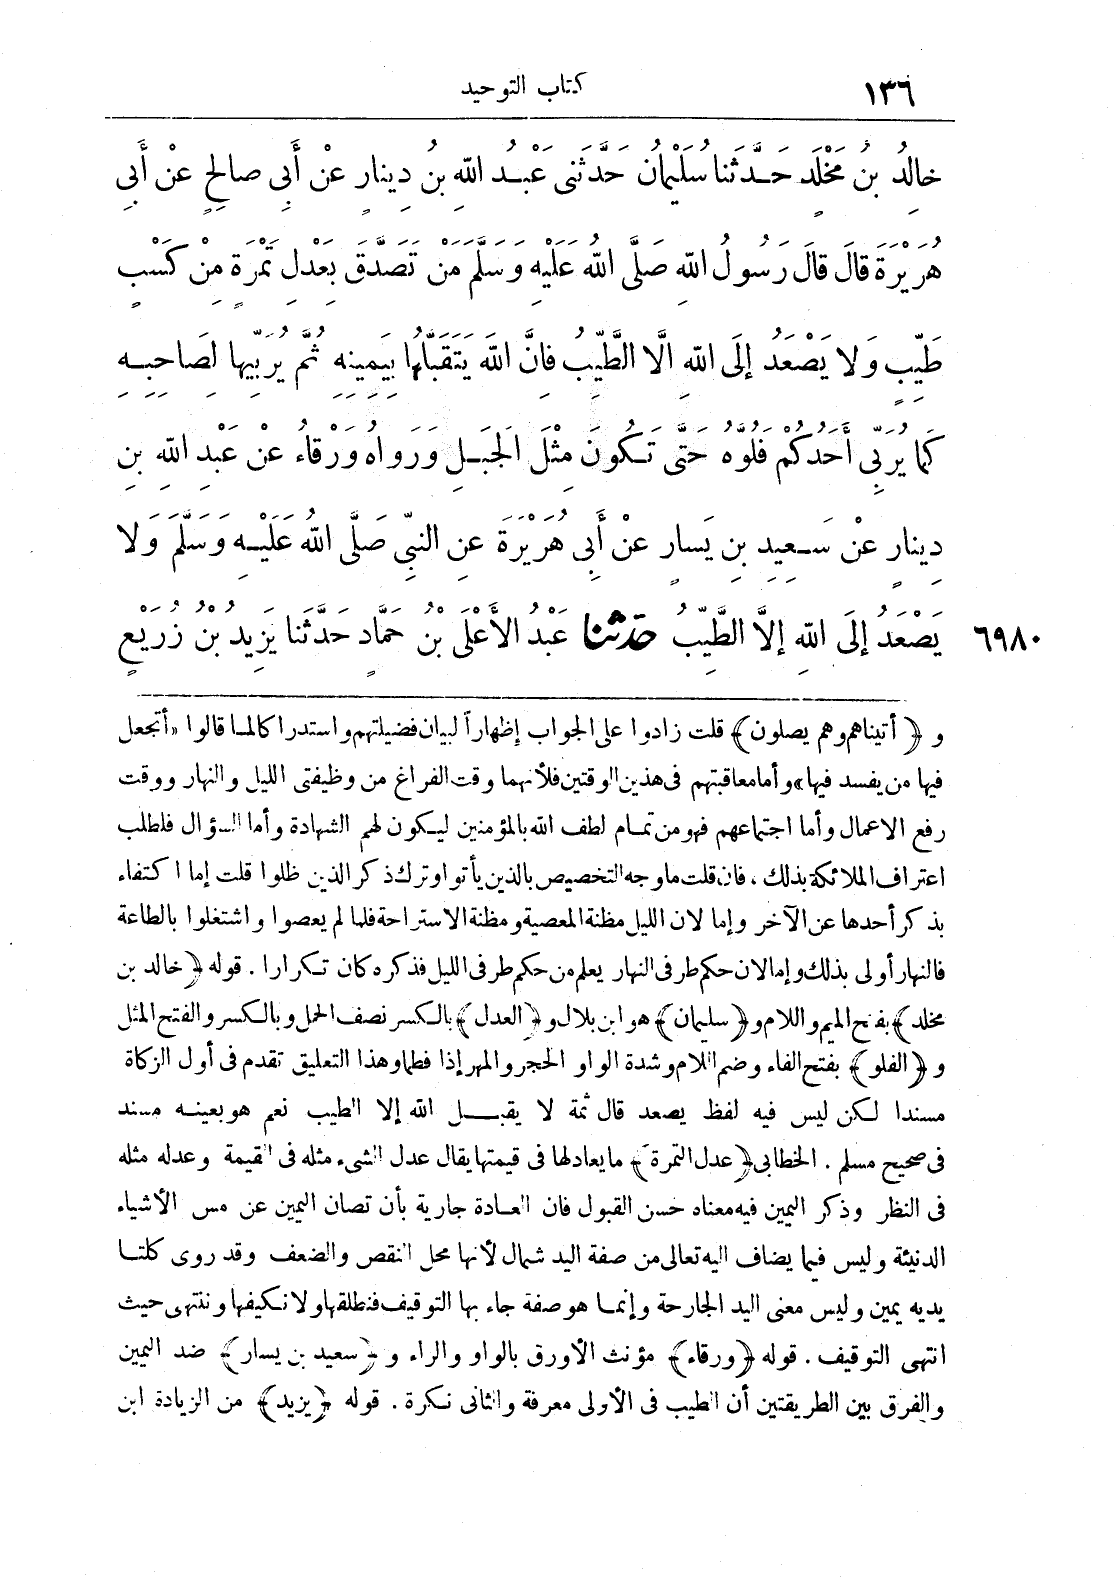 ١٣٦ كتاب التوحيد
خالِدُ بنُ مَخْلَدٍ حَدَّثَنا سُلَيْمانُ حَدَّثَنى عَبْدُ اللهِ بنُ دِينارٍ عنْ أَبى صالِحٍ عنْ أَبى
هُرَيْرَةَ قالَ قالَ رَسُولُ اللهِ صَلَّى اللهُ عَلَيْهِ وَسَلَّمَ مَنْ تَصَدَّقَ بِعَدْلِ تَمْرَةٍ مِنْ كَسْبٍ
طَيِّبٍ وَلا يَصْعَدُ إلَى اللهِ الَّا الطَّيِّبُ فانَّ اللهَ يَتَقَبَّلُها بِيَمِينِهِ ثُمَّ يُرَبِّيها لِصَاحِبِهِ
كَما يُرَبِّى أَحَدُكُمْ فَلُوَّهُ حَتَّى تَكُونَ مِثْلَ الجَبَلِ وَرَواهُ وَرْقاءُ عنْ عَبْدِ اللهِ بنِ
دِينارٍ عنْ سَعِيدِ بنِ يَسارٍ عنْ أَبى هُرَيْرَةَ عنِ النبىِّ صَلَّى اللهُ عَلَيْهِ وَسَلَّمَ وَلا
يَصْعَدُ إلَى اللهِ إلَّا الطَّيِّبُ حَدَّثَنا عَبْدُ الأَعْلَى بنُ حَمَّادٍ حَدَّثَنا يَزِيدُ بنُ زُرَيْعٍ ٦٩٨٠
و ﴿أتيناهم وهم يصلون﴾ قلت زادوا على الجواب إظهاراً لبيان فضيلتهم واستدراكا لما قالوا «أتجعل
فيها من يفسد فيها» وأما معاقبتهم فى هذين الوقتين فلأنهما وقت الفراغ من وظيفتى الليل والنهار ووقت
رفع الاعمال وأما اجتماعهم فهو من تمام لطف الله بالمؤمنين ليكون لهم الشهادة وأما السؤال فلطلب
اعتراف الملائكة بذلك ، فان قلت ما وجه التخصيص بالذين يأتوا وترك ذكر الذين ظلوا قلت إما اكتفاء
بذكر أحدها عن الآخر وإما لان الليل مظنة المعصية ومظنة الاستراحة فلما لم يعصوا واشتغلوا بالطاعة
فالنهار أولى بذلك وإما لان حكم طرفى النهار يعلم من حكم طرفى الليل فذكره كان تكرارا . قوله ﴿خالد بن
مخلد﴾ بفتح الميم واللام و﴿سليمان﴾ هو ابن بلال و﴿العدل﴾ بالكسر نصف الحمل وبالكسر والفتح المثل
و ﴿الفلو﴾ بفتح الفاء وضم اللام وشدة الواو الحجر والمهر إذا فطما وهذا التعليق تقدم فى أول الزكاة
مسندا لكن ليس فيه لفظ يصعد قال ثمة لا يقبل الله إلا الطيب نعم هو بعينه مسند
فى صحيح مسلم . الخطابى ﴿عدل التمرة﴾ ما يعادلها فى قيمتها يقال عدل الشىء مثله فى القيمة وعدله مثله
فى النظر وذكر اليمين فيه معناه حسن القبول فان العادة جارية بأن تصان اليمين عن مس الأشياء
الدنيئة وليس فيما يضاف اليه تعالى من صفة اليد شمال لأنها محل النقص والضعف وقد روى كلتا
يديه يمين وليس معنى اليد الجارحة وإنما هو صفة جاء بها التوقيف فنطلقها ولا نكيفها وننتهى حيث
انتهى التوقيف . قوله ﴿ورقاء﴾ مؤنث الأورق بالواو والراء و ﴿سعيد بن يسار﴾ ضد اليمين
والفرق بين الطريقتين أن الطيب فى الأولى معرفة والثانى نكرة . قوله ﴿يزيد﴾ من الزيادة ابن